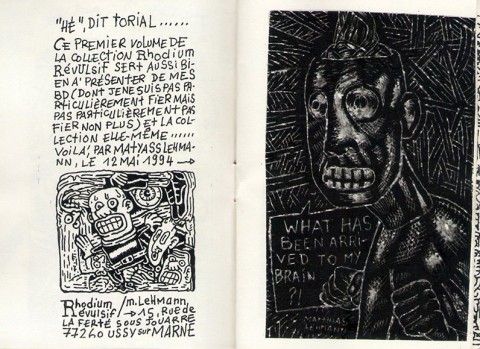 "HÉ", DIT TORIAL......
CE PREMIER VOLUME DE
LA COLLECTION Rhodium
RÉVULSIF SERT AUSSI BI-
EN A' PRÉSENTER DE MES
BD (DONT JE NE SUIS PAS PA-
RTICULIÈREMENT FIER MAIS
PAS PARTICULIÈREMENT PAS
FIER NON PLUS) ET LA COL-
LECTION ELLE-MÊME......
VOILÀ, PAR MATYASS LEHMA-
NN, LE 12 MAI 1994 →
Rhodium / M. LEHMANN,
Révulsif / → 15, RUE de
LA FERTÉ SOUS JOUARRE
77260 USSY sur MARNE
WHAT HAS
BEEN ARRI-
VED TO MY
BRAIN
?!
MATTHIAS
LEHMANN